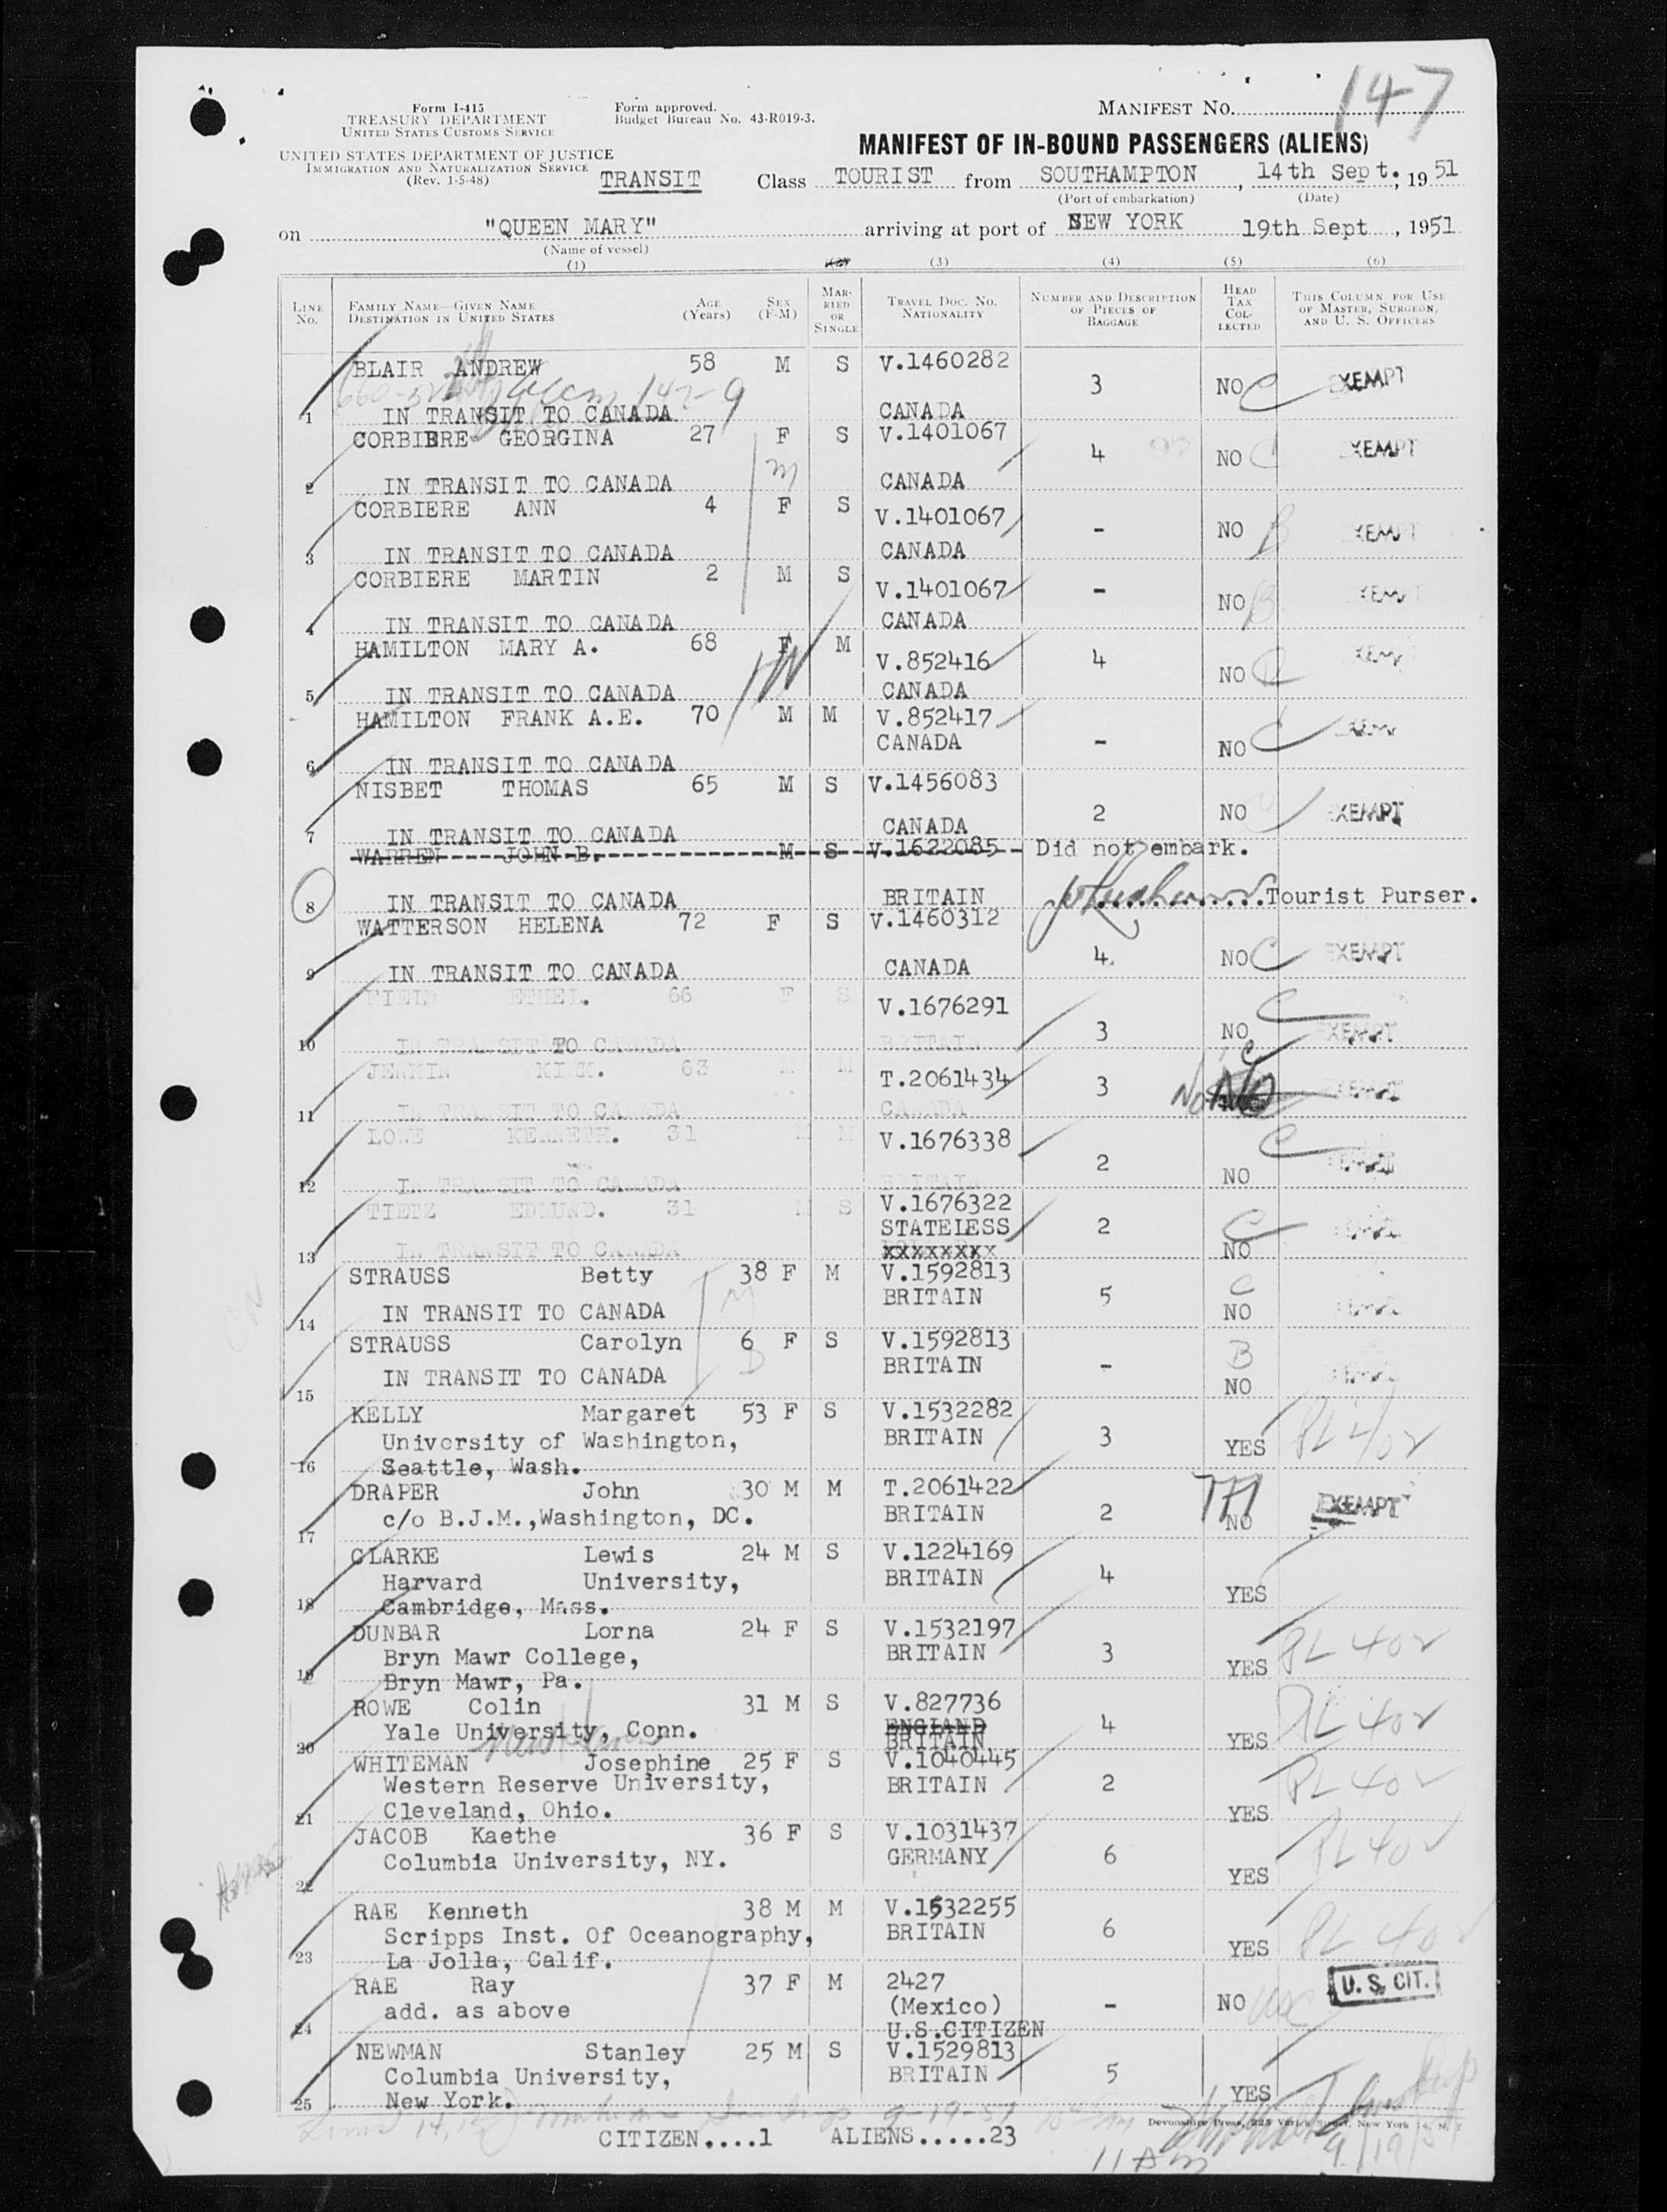 147
Form I-415
TREASURY DEPARTMENT
UNITED STATES CUSTOMS SERVICE
Form approved.
Budget Bureau No. 43-R019-3.
MANIFEST No.
MANIFEST OF IN-BOUND PASSENGERS (ALIENS)
UNITED STATES DEPARTMENT OF JUSTICE
IMMIGRATION AND NATURALIZATION SERVICE
(Rev. 1-5-48)
TRANSIT Class TOURIST from SOUTHAMPTON, 14th Sept., 1951
(Port of embarkation) (Date)
on "QUEEN MARY" arriving at port of NEW YORK 19th Sept, 1951
(Name of vessel)
(1) (3) (4) (5) (6)
LINE No. FAMILY NAME—GIVEN NAME DESTINATION IN UNITED STATES AGE (Years) SEX (F-M) MARRIED OR SINGLE TRAVEL DOC. NO. NATIONALITY NUMBER AND DESCRIPTION OF PIECES OF BAGGAGE HEAD TAX COLLECTED THIS COLUMN FOR USE OF MASTER, SURGEON, AND U. S. OFFICERS
BLAIR ANDREW 58 M S V.1460282
3 NO C EXEMPT
1 IN TRANSIT TO CANADA CANADA
CORBIERE GEORGINA 27 F S V.1401067
4 NO C EXEMPT
2 IN TRANSIT TO CANADA CANADA
CORBIERE ANN 4 F S V.1401067
- NO B EXEMPT
3 IN TRANSIT TO CANADA CANADA
CORBIERE MARTIN 2 M S V.1401067
- NO B
4 IN TRANSIT TO CANADA CANADA
HAMILTON MARY A. 68 F M V.852416
4 NO
5 IN TRANSIT TO CANADA CANADA
HAMILTON FRANK A.E. 70 M M V.852417
CANADA - NO C
6 IN TRANSIT TO CANADA
NISBET THOMAS 65 M S V.1456083
2 NO EXEMPT
7 IN TRANSIT TO CANADA CANADA
WARREN JOHN B. M S V.1622085 Did not embark.
8 IN TRANSIT TO CANADA BRITAIN Tourist Purser.
WATTERSON HELENA 72 F S V.1460312
4. NO C EXEMPT
9 IN TRANSIT TO CANADA CANADA
FIELD ETHEL. 66 F S V.1676291
3 NO C EXEMPT
10 IN TRANSIT TO CANADA BRITAIN
JENKIN 63 M M T.2061434
3 No EXEMPT
11 IN TRANSIT TO CANADA CANADA
LOWE KENNETH. 31 M M V.1676338
2 NO C
12 IN TRANSIT TO CANADA BRITAIN
TIETZ EDMUND. 31 M S V.1676322
STATELESS 2 C
13 IN TRANSIT TO CANADA XXXXXXXX NO
STRAUSS Betty 38 F M V.1592813
BRITAIN 5 C
14 IN TRANSIT TO CANADA NO
STRAUSS Carolyn 6 F S V.1592813
BRITAIN - B
15 IN TRANSIT TO CANADA NO
KELLY Margaret 53 F S V.1532282
University of Washington, BRITAIN 3 YES PL 402
16 Seattle, Wash.
DRAPER John 30 M M T.2061422
17 c/o B.J.M.,Washington, DC. BRITAIN 2 NO EXEMPT
CLARKE Lewis 24 M S V.1224169
Harvard University, BRITAIN 4 YES
18 Cambridge, Mass.
DUNBAR Lorna 24 F S V.1532197
Bryn Mawr College, BRITAIN 3 YES PL 402
19 Bryn Mawr, Pa.
ROWE Colin 31 M S V.827736
ENGLAND
20 Yale University, Conn. BRITAIN 4 YES PL 402
New Haven
WHITEMAN Josephine 25 F S V.1040445
Western Reserve University, BRITAIN 2 PL 402
21 Cleveland, Ohio. YES
JACOB Kaethe 36 F S V.1031437
22 Columbia University, NY. GERMANY 6 YES PL 402
RAE Kenneth 38 M M V.1532255
Scripps Inst. Of Oceanography, BRITAIN 6 YES PL 402
23 La Jolla, Calif.
RAE Ray 37 F M 2427 U. S. CIT.
add. as above (Mexico) - NO USC
24 U.S.CITIZEN
NEWMAN Stanley 25 M S V.1529813
Columbia University, BRITAIN 5 YES
25 New York.
Devonshire Press, 225 Varick Street, New York 14, N. Y.
CITIZEN....1 ALIENS.....23
11 AM 9/19/51